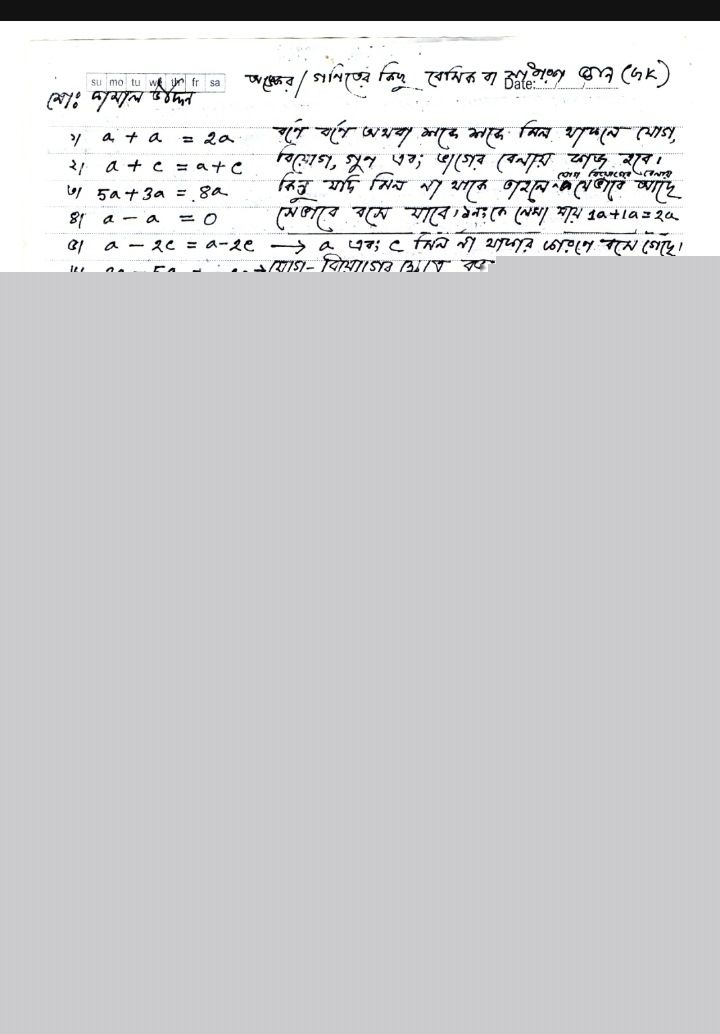 su mo tu we th fr sa
অংকের / গণিতের কিছু বেসিক বা সাধারণ জ্ঞান (GK)
Date:
মোঃ কামাল উদ্দিন
১। a + a = 2a বর্ণে বর্ণে অথবা শব্দে শব্দে মিল থাকলে যোগ,
২। a + c = a + c বিয়োগ, গুণ এবং ভাগের বেলায় কাজ হবে।
৩। 5a + 3a = 8a কিন্তু যদি মিল না থাকে তাহলে যেভাবে আছে
৪। a - a = 0 সেভাবে বসে যাবে। ১নং কে লেখা যায় 1a+1a=2a
৫। a - 2c = a-2c → a এবং c মিল না থাকার কারণে বসে গেছে।
যোগ- বিয়োগের